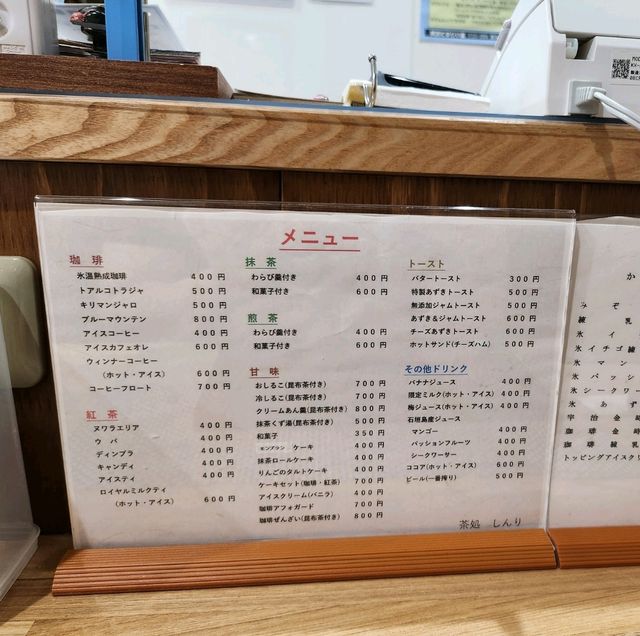 メニュー
珈琲
氷温熟成珈琲 400円
トアルコトラジャ 500円
キリマンジャロ 500円
ブルーマウンテン 800円
アイスコーヒー 400円
アイスカフェオレ 600円
ウィンナーコーヒー
(ホット・アイス) 600円
コーヒーフロート 700円
紅茶
ヌワラエリア 400円
ウバ 400円
ディンブラ 400円
キャンディ 400円
アイスティ 400円
ロイヤルミルクティ
(ホット・アイス) 600円
抹茶
わらび羹付き 400円
和菓子付き 600円
煎茶
わらび羹付き 400円
和菓子付き 600円
甘味
おしるこ(昆布茶付き) 700円
冷しるこ(昆布茶付き) 700円
クリームあん羹(昆布茶付き) 800円
抹茶くず湯(昆布茶付き) 500円
和菓子 350円
モンブラン ケーキ 400円
抹茶ロールケーキ 400円
りんごのタルトケーキ 400円
ケーキセット(珈琲・紅茶) 700円
アイスクリーム(バニラ) 400円
珈琲アフォガード 700円
珈琲ぜんざい(昆布茶付き) 800円
トースト
バタートースト 300円
特製あずきトースト 500円
無添加ジャムトースト 500円
あずき&ジャムトースト 600円
チーズあずきトースト 600円
ホットサンド(チーズハム) 500円
その他ドリンク
バナナジュース 400円
限定ミルク(ホット・アイス) 400円
梅ジュース(ホット・アイス) 400円
石垣島産ジュース
マンゴー 400円
パッションフルーツ 400円
シークワーサー 400円
ココア(ホット・アイス) 600円
ビール(一番搾り) 500円
茶処 しんり
か
みぞ
練乳
氷イ
氷イチゴ練
氷マン
氷パッシ
氷シークワ
氷あず
宇治金時
珈琲金時
珈琲練乳
トッピングアイスクリ